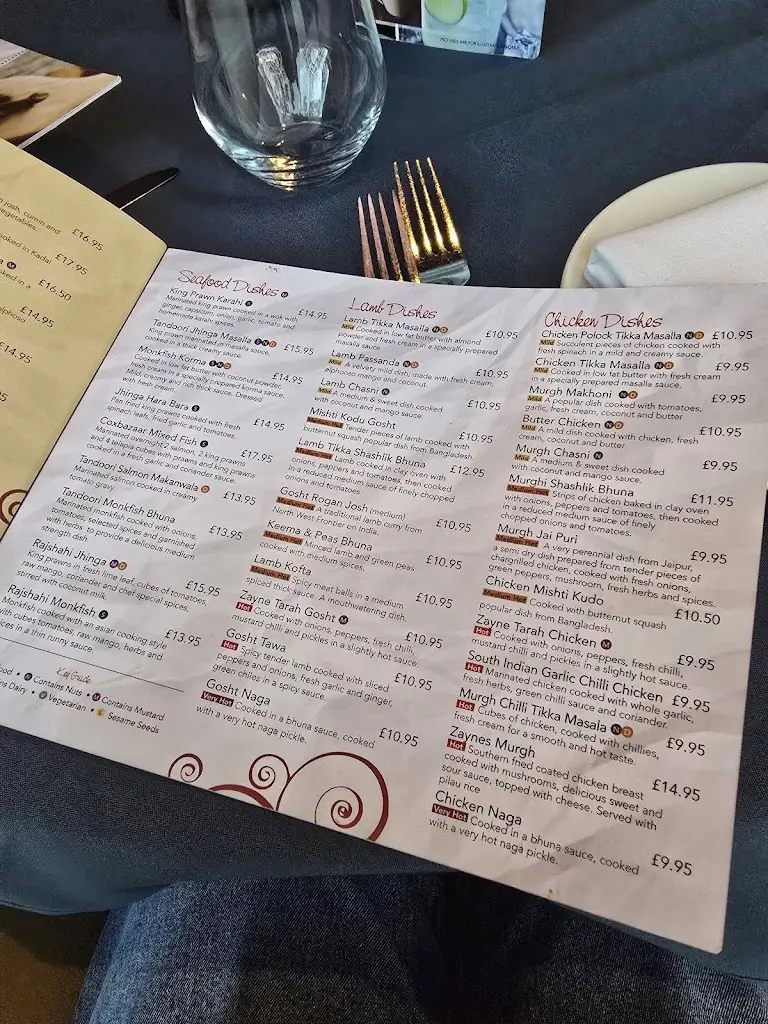 PICTURES ARE FOR ILLUSTRATION ONLY
josh, cumin and
vegetables.
£16.95
cooked in Kadai
£17.95
M
cooked in a
£16.50
alphoso
£14.95
£14.95
Seafood Dishes M
King Prawn Karahi S £14.95
Marinated king prawn cooked in a wok with
ginger, capsicum, onion, garlic, tomato and
homemade Asian spices.
Tandoori Jhinga Masalla S N D £15.95
King prawn marinated in masalla sauce,
cooked in a thick creamy sauce.
Monkfish Korma S N D £14.95
Cooked in low fat butter with coconut powder,
fresh cream in a specially prepared korma sauce.
A creamy and rich thick sauce. Dressed
with fresh cream.
Jhinga Hara Bara S £14.95
Pan fried king prawns cooked with fresh
spinach leaf, fried garlic and tomatoes.
Coxbazaar Mixed Fish S £17.95
Marinated overnight 2 salmon, 2 king prawns
and 4 telapia cubes with prawns and king prawns
cooked in a fresh garlic and coriander sauce.
Tandoori Salmon Makanwala D £13.95
Marinated salmon cooked in creamy
tomato gravy.
Tandoori Monkfish Bhuna £13.95
Marinated monkfish cooked with onions,
tomatoes, selected spices and garnished
with herbs, to provide a delicious medium
strength dish
Rajshahi Jhinga M D £15.95
King prawns in fresh lime leaf, cubes of tomatoes,
raw mango, coriander and chef special spices,
stirred with coconut milk.
Rajshahi Monkfish S £13.95
Monkfish cooked with an asian cooking style
with cubes tomatoes, raw mango, herbs and
spices in a thin runny sauce.
Key Guide
ood • N Contains Nuts • M Contains Mustard
ns Dairy • V Vegetarian • S Sesame Seeds
Lamb Dishes
Lamb Tikka Masalla N D £10.95
Mild Cooked in low fat butter with almond
powder and fresh cream in a specially prepared
masala sauce.
Lamb Passanda N D £10.95
Mild A velvety mild dish, made with fresh cream,
alphonso mango and coconut.
Lamb Chasni N £10.95
Mild A medium & sweet dish cooked
with coconut and mango sauce.
Mishti Kodu Gosht £10.95
Medium Hot Tender pieces of lamb cooked with
butternut squash popular dish from Bangladesh.
Lamb Tikka Shashlik Bhuna £12.95
Medium Hot Lamb cooked in clay oven with
onions, peppers and tomatoes, then cooked
in a reduced medium sauce of finely chopped
onions and tomatoes.
Gosht Rogan Josh (medium) £10.95
Medium Hot A traditional lamb curry from
North West Frontier on India.
Keema & Peas Bhuna £10.95
Medium Hot Minced lamb and green peas
cooked with medium spices.
Lamb Kofta £10.95
Medium Hot Spicy meat balls in a medium
spiced thick sauce. A mouthwatering dish.
Zayne Tarah Gosht M £10.95
Hot Cooked with onions, peppers, fresh chilli,
mustard chilli and pickles in a slightly hot sauce.
Gosht Tawa £10.95
Hot Spicy tender lamb cooked with sliced
peppers and onions, fresh garlic and ginger,
green chiles in a spicy sauce.
Gosht Naga £10.95
Very Hot Cooked in a bhuna sauce, cooked
with a very hot naga pickle.
Chicken Dishes
Chicken Polock Tikka Masalla N D £10.95
Mild Succulent pieces of chicken cooked with
fresh spinach in a mild and creamy sauce.
Chicken Tikka Masalla N D £9.95
Mild Cooked in low fat butter with fresh cream
in a specially prepared masalla sauce.
Murgh Makhoni N D £9.95
Mild A popular dish cooked with tomatoes,
garlic, fresh cream, coconut and butter
Butter Chicken N D £10.95
Mild A mild dish cooked with chicken, fresh
cream, coconut and butter
Murgh Chasni N £9.95
Mild A medium & sweet dish cooked
with coconut and mango sauce.
Murghi Shashlik Bhuna £11.95
Medium Hot Strips of chicken baked in clay oven
with onions, peppers and tomatoes, then cooked
in a reduced medium sauce of finely
chopped onions and tomatoes.
Murgh Jai Puri £9.95
Medium Hot A very perennial dish from Jaipur,
a semi dry dish prepared from tender pieces of
chargrilled chicken, cooked with fresh onions,
green peppers, mushroom, fresh herbs and spices.
Chicken Mishti Kudo £10.50
Medium Hot Cooked with butternut squash
popular dish from Bangladesh.
Zayne Tarah Chicken M £9.95
Hot Cooked with onions, peppers, fresh chilli,
mustard chilli and pickles in a slightly hot sauce.
South Indian Garlic Chilli Chicken £9.95
Hot Marinated chicken cooked with whole garlic,
fresh herbs, green chilli sauce and coriander.
Murgh Chilli Tikka Masala N D £9.95
Hot Cubes of chicken, cooked with chillies,
fresh cream for a smooth and hot taste.
Zaynes Murgh £14.95
Hot Southern fried coated chicken breast
cooked with mushrooms, delicious sweet and
sour sauce, topped with cheese. Served with
pilau rice
Chicken Naga £9.95
Very Hot Cooked in a bhuna sauce, cooked
with a very hot naga pickle.